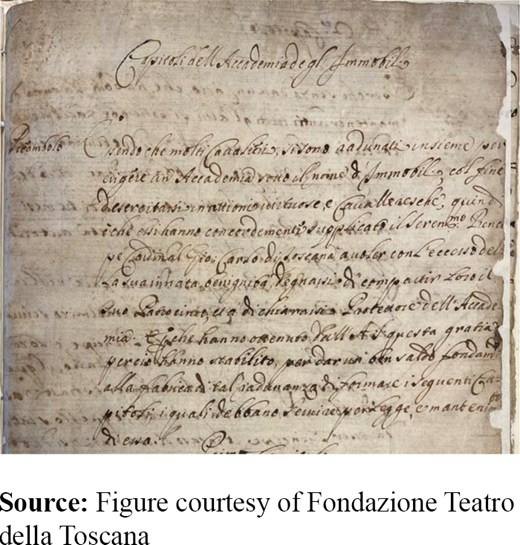 Capitoli dell Accademia de gl' Immobili
Preambolo
Essendo che molti Cavalieri, si sono adunati insieme per
erigere un' Accademia sotto il nome d' Immobili, col fine
d'esercitarsi in attioni virtuose, e Cavalleresche, quindi
è che essi hanno concordemente supplicato il Seren.mo Prenci
pe Cardinal Gio: Carlo di Toscana a voler con l'eccesso del
la sua innata benignità, degnarsi di compartir loro il
suo Patrocinio, e di chiararsi Protettore dell' Accade
mia. E che hanno ottenuto dall' A. S. questa gratia
perciò hanno stabilito, per dar un saldo fondam.
alla fabrica di tal radunanza di formare i seguenti Ca
pitoli, i quali debbano servire per legge, e mantenim
di essa.
Source: Figure courtesy of Fondazione Teatro
della Toscana